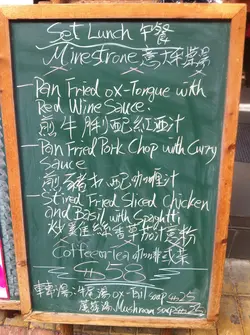 Set Lunch 午餐
Minestrone 意大利菜湯
-Pan Fried ox-Tongue with
Red Wine Sauce
煎牛脷配紅酒汁
-Pan Fried Pork Chop with Curry
Sauce
煎豬扒配咖喱汁
-Stired Fried Sliced Chicken
and Basil with Spaghtti
炒雞絲香草茄汁意粉
Coffee or tea 咖啡或茶
$58
牛尾湯 ox-Tail soup $25
蘑菇湯 Mushroom soup $25